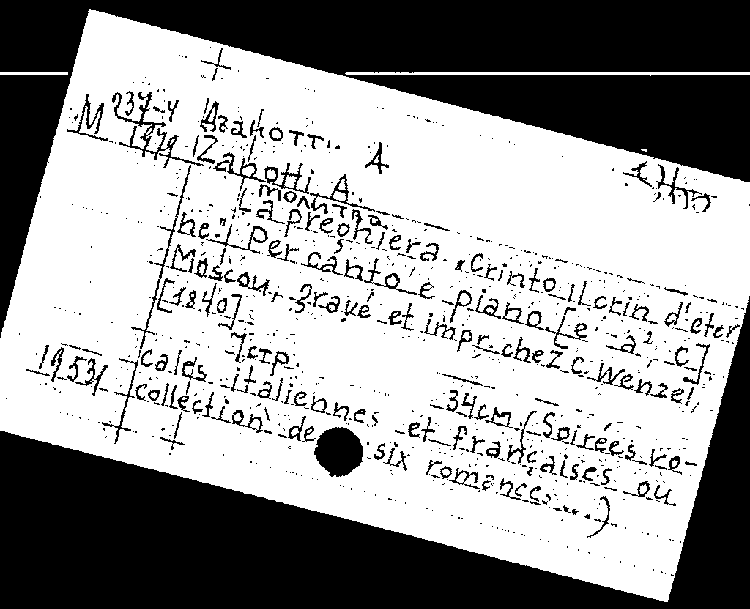 М 237-4 Дзанотти. А
1979 Zanotti A.
молитва
La preghiera. „Crinto il crin d'eter
ne." Per canto e piano [e'-a², C].
Moscou, gravé et impr. chez C. Wenzel,
[1840].
7 стр. 34 см (Soirées vo-
19531 cales italiennes et françaises ou
collection de six romances...)